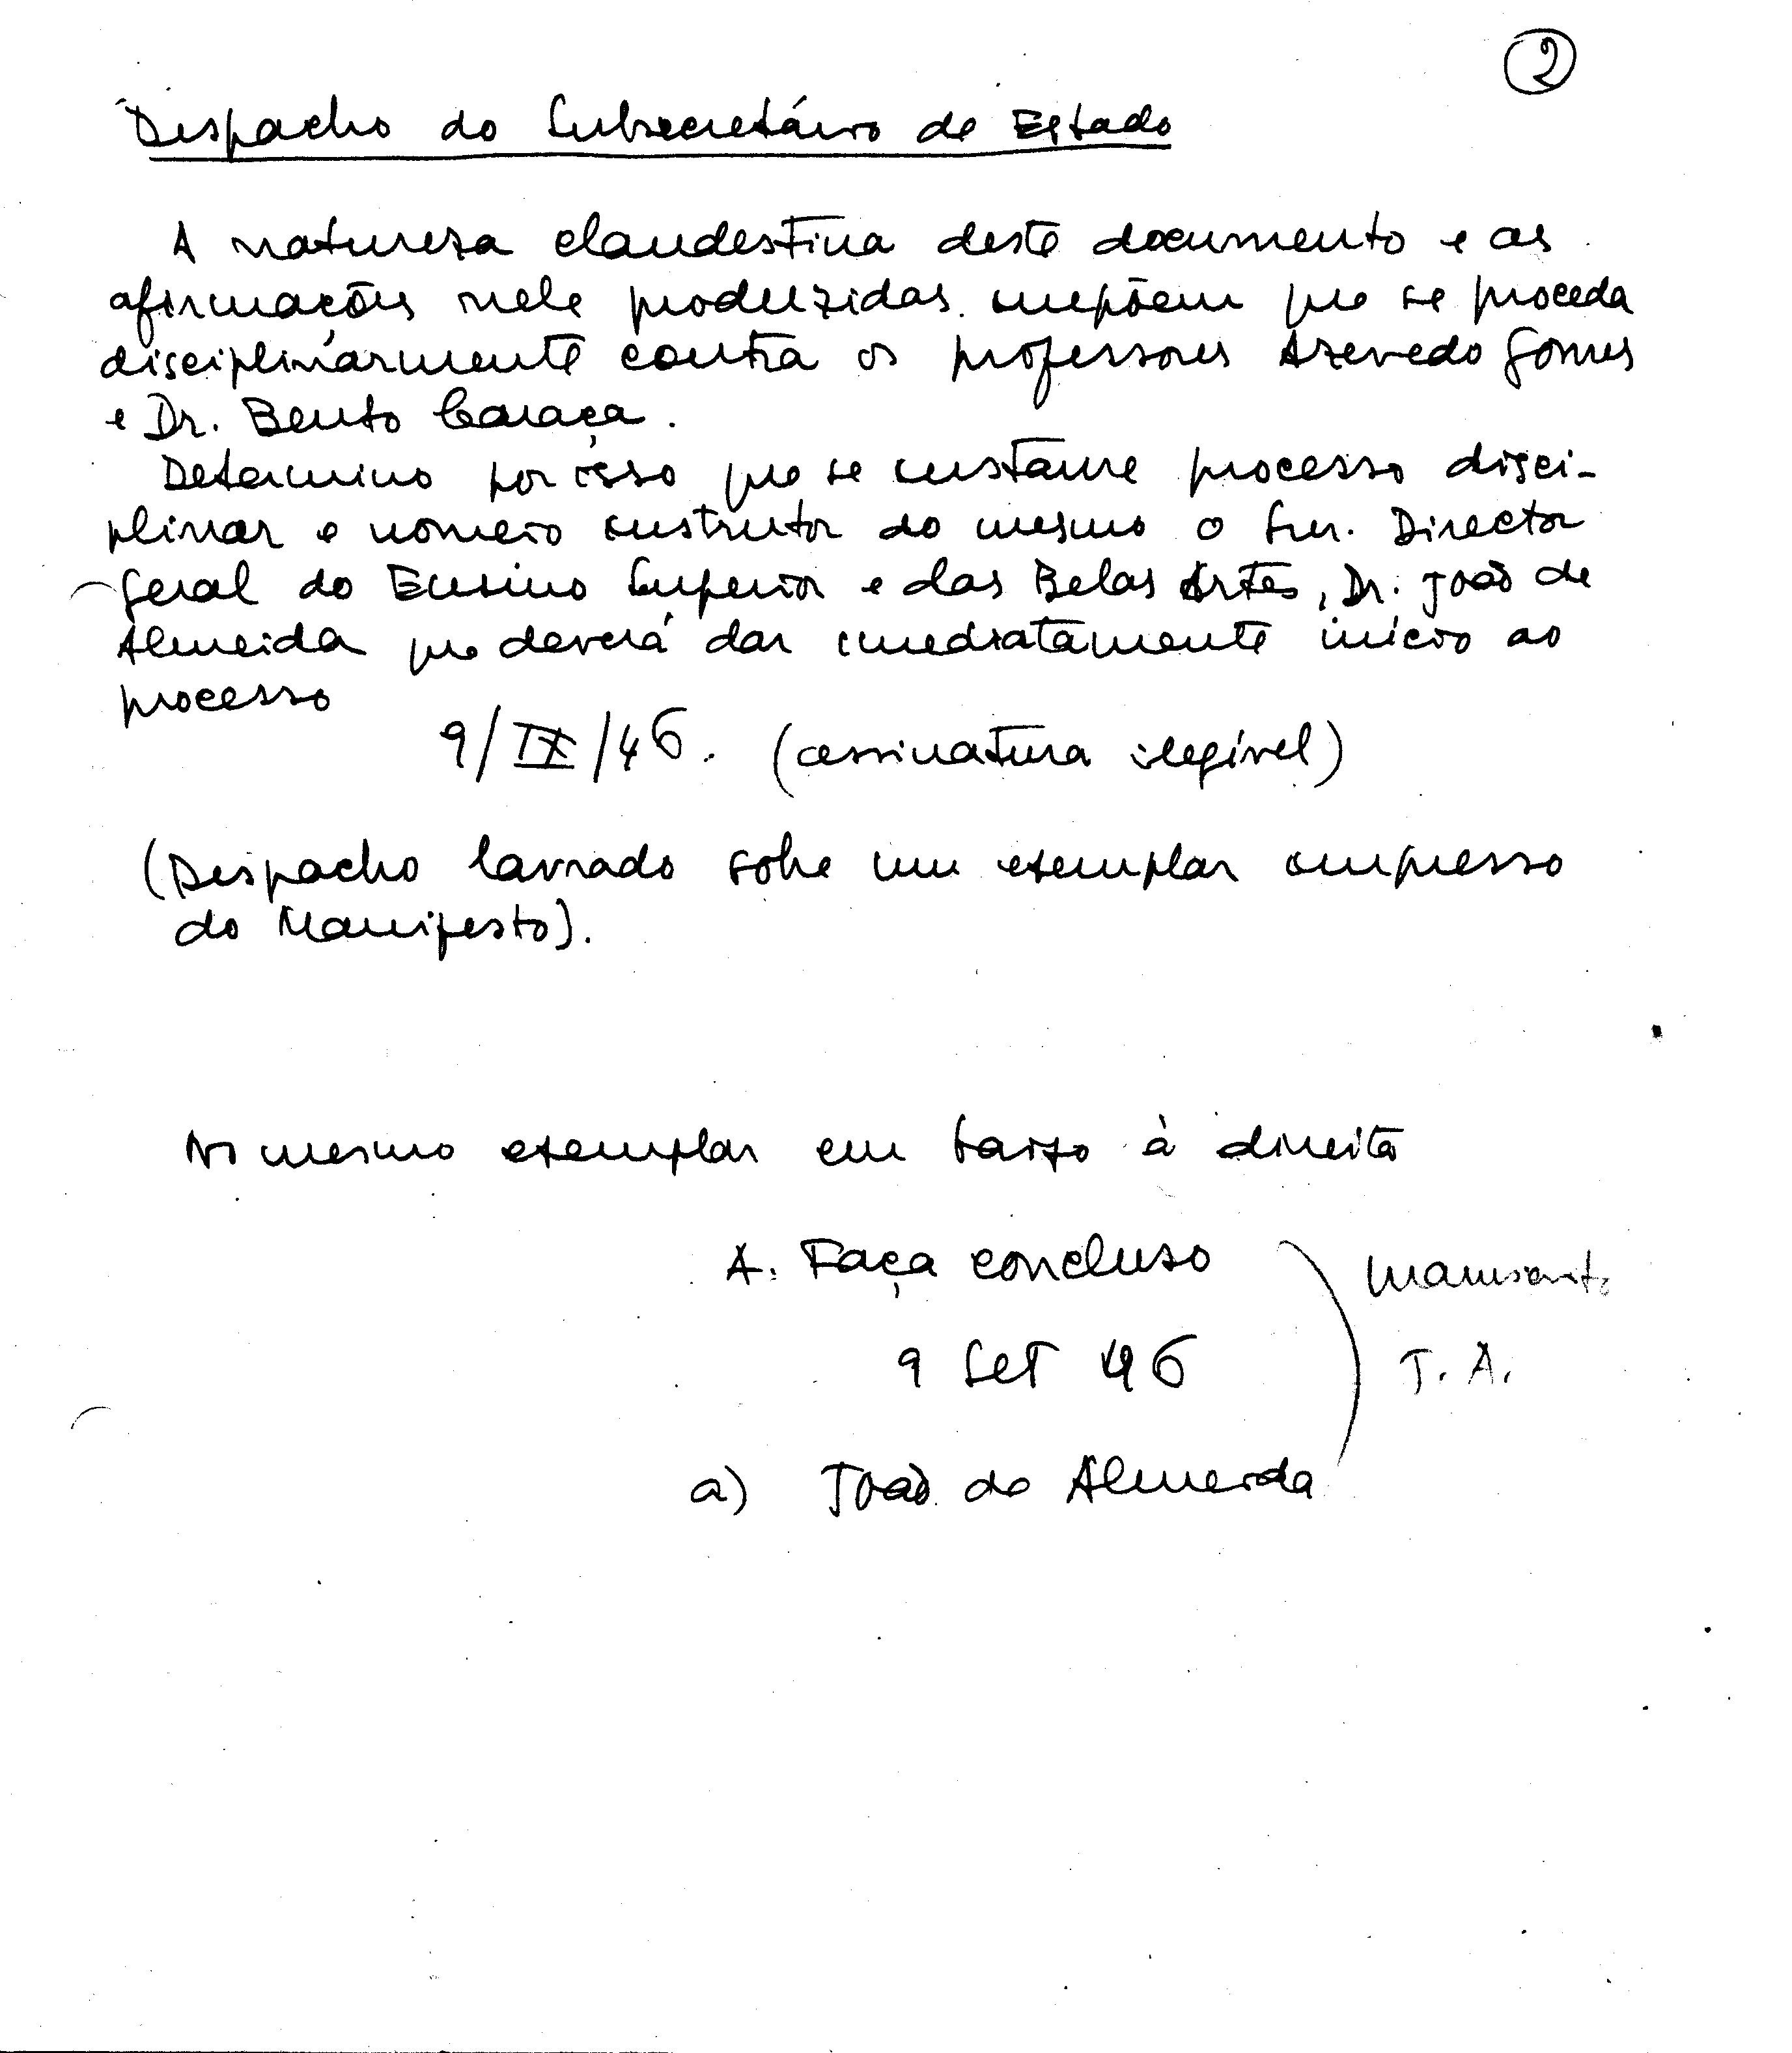 2
Despacho do Subsecretário de Estado
A natureza clandestina deste documento e as
afirmações nele produzidas impõem que se proceda
disciplinarmente contra os professores Azevedo Gomes
e Dr. Bento Caraça.
Determino por isso que se instaure processo disci-
plinar e nomeio instrutor do mesmo o Snr. Director
Geral do Ensino Superior e das Belas Artes, Dr. João de
Almeida que deverá dar imediatamente início ao
processo
9/IX/46. (assinatura ilegível)
(Despacho lavrado sobre um exemplar impresso
do Manifesto).
No mesmo exemplar em baixo à direita
A. Faça concluso
manuscrito
9 Set 46
J. A.
a) João de Almeida